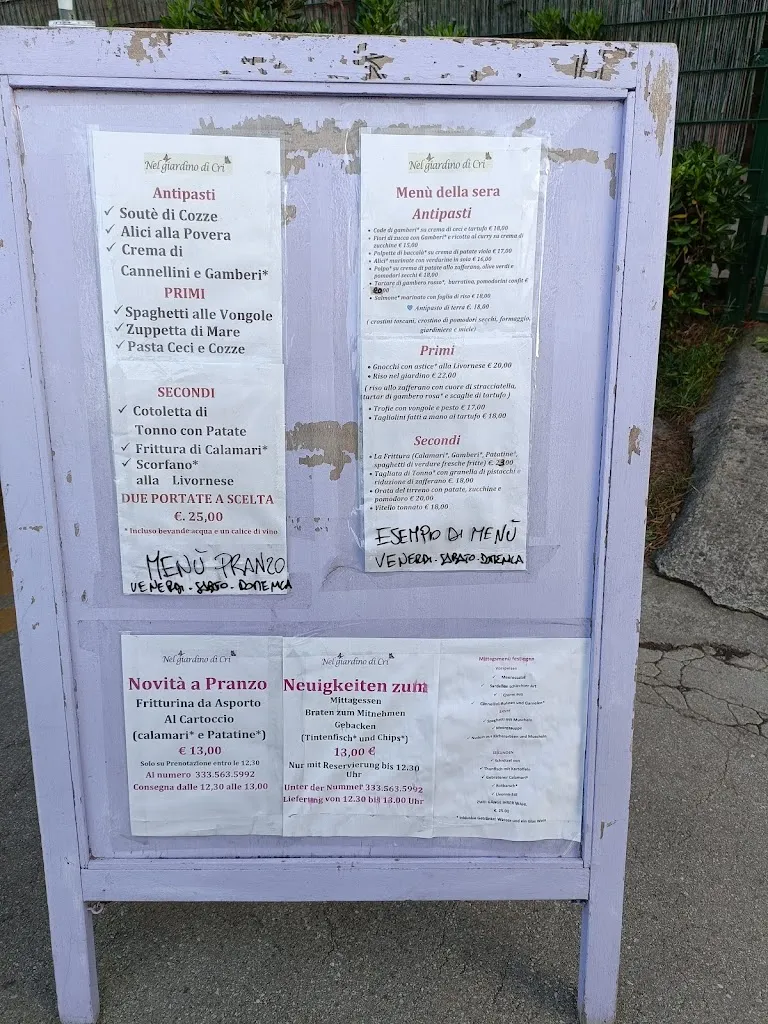 Nel giardino di Cri
Antipasti
✓ Soutè di Cozze
✓ Alici alla Povera
✓ Crema di
Cannellini e Gamberi*
PRIMI
✓ Spaghetti alle Vongole
✓ Zuppetta di Mare
✓ Pasta Ceci e Cozze
SECONDI
✓ Cotoletta di
Tonno con Patate
✓ Frittura di Calamari*
✓ Scorfano*
alla Livornese
DUE PORTATE A SCELTA
€. 25,00
* Incluso bevande:acqua e un calice di vino
MENÙ PRANZO
VENERDI - SABATO - DOMENICA
Nel giardino di Cri
Menù della sera
Antipasti
• Code di gamberi* su crema di ceci e tartufo € 18,00
• Fiori di zucca con Gamberi* e ricotta al curry su crema di
zucchine € 15,00
• Polpette di baccalà* su crema di patate viola € 17,00
• Alici* marinate con verdurine in soia € 16,00
• Polpo* su crema di patate allo zafferano, olive verdi e
pomodori secchi € 18,00
• Tartare di gambero rosso*, burratina, pomodorini confit €
• Salmone* marinato con foglia di riso € 18,00
Antipasto di terra €. 18,00
( crostini toscani, crostino di pomodori secchi, formaggio,
giardiniera e miele)
Primi
• Gnocchi con astice* alla Livornese € 20,00
• Riso nel giardino € 22,00
( riso allo zafferano con cuore di stracciatella,
tartar di gambero rosa* e scaglie di tartufo )
• Trofie con vongole e pesto € 17,00
• Tagliolini fatti a mano al tartufo € 18,00
Secondi
• La Frittura (Calamari*, Gamberi*, Patatine*,
spaghetti di verdure fresche fritte) € 23,00
• Tagliata di Tonno* con granella di pistacchi e
riduzione di zafferano €. 18,00
• Orata del tirreno con patate, zucchine e
pomodoro € 20,00
• Vitello tonnato € 18,00
ESEMPIO DI MENÙ
VENERDI - SABATO - DOMENICA
Nel giardino di Cri
Novità a Pranzo
Fritturina da Asporto
Al Cartoccio
(calamari* e Patatine*)
€ 13,00
Solo su Prenotazione entro le 12.30
Al numero 333.563.5992
Consegna dalle 12,30 alle 13,00
Nel giardino di Cri
Neuigkeiten zum
Mittagessen
Braten zum Mitnehmen
Gebacken
(Tintenfisch* und Chips*)
13,00 €
Nur mit Reservierung bis 12.30
Uhr
Unter der Nummer 333.563.5992
Lieferung von 12.30 bis 13.00 Uhr
Mittagsmenü festlegen